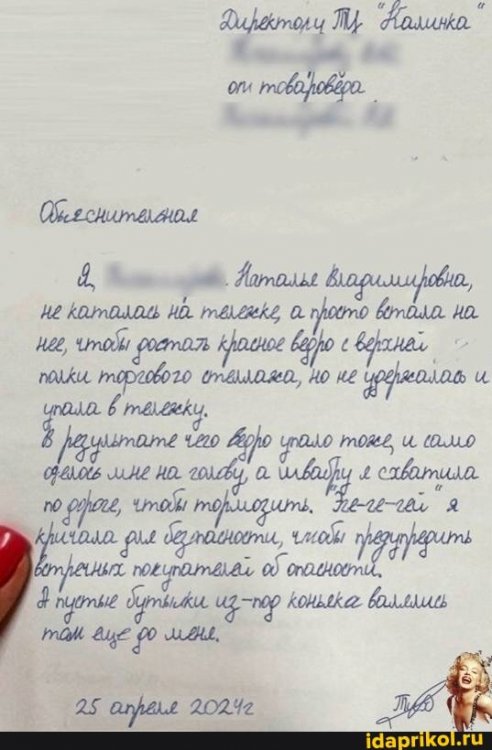 Директору ТЦ "Калинка"
от товароведа
Объяснительная
Я, Наталья Владимировна,
не каталась на тележке, а просто встала на
нее, чтобы достать красное ведро с верхней
полки торгового стеллажа, но не удержалась и
упала в тележку.
В результате чего ведро упало тоже, и само
оделось мне на голову, а швабру я схватила
по дороге, чтобы тормозить. "Эге-гей" я
кричала для безопасности, чтобы предупредить
встречных покупателей об опасности.
А пустые бутылки из-под коньяка валялись
там еще до меня.
25 апреля 2024г
idaprikol.ru